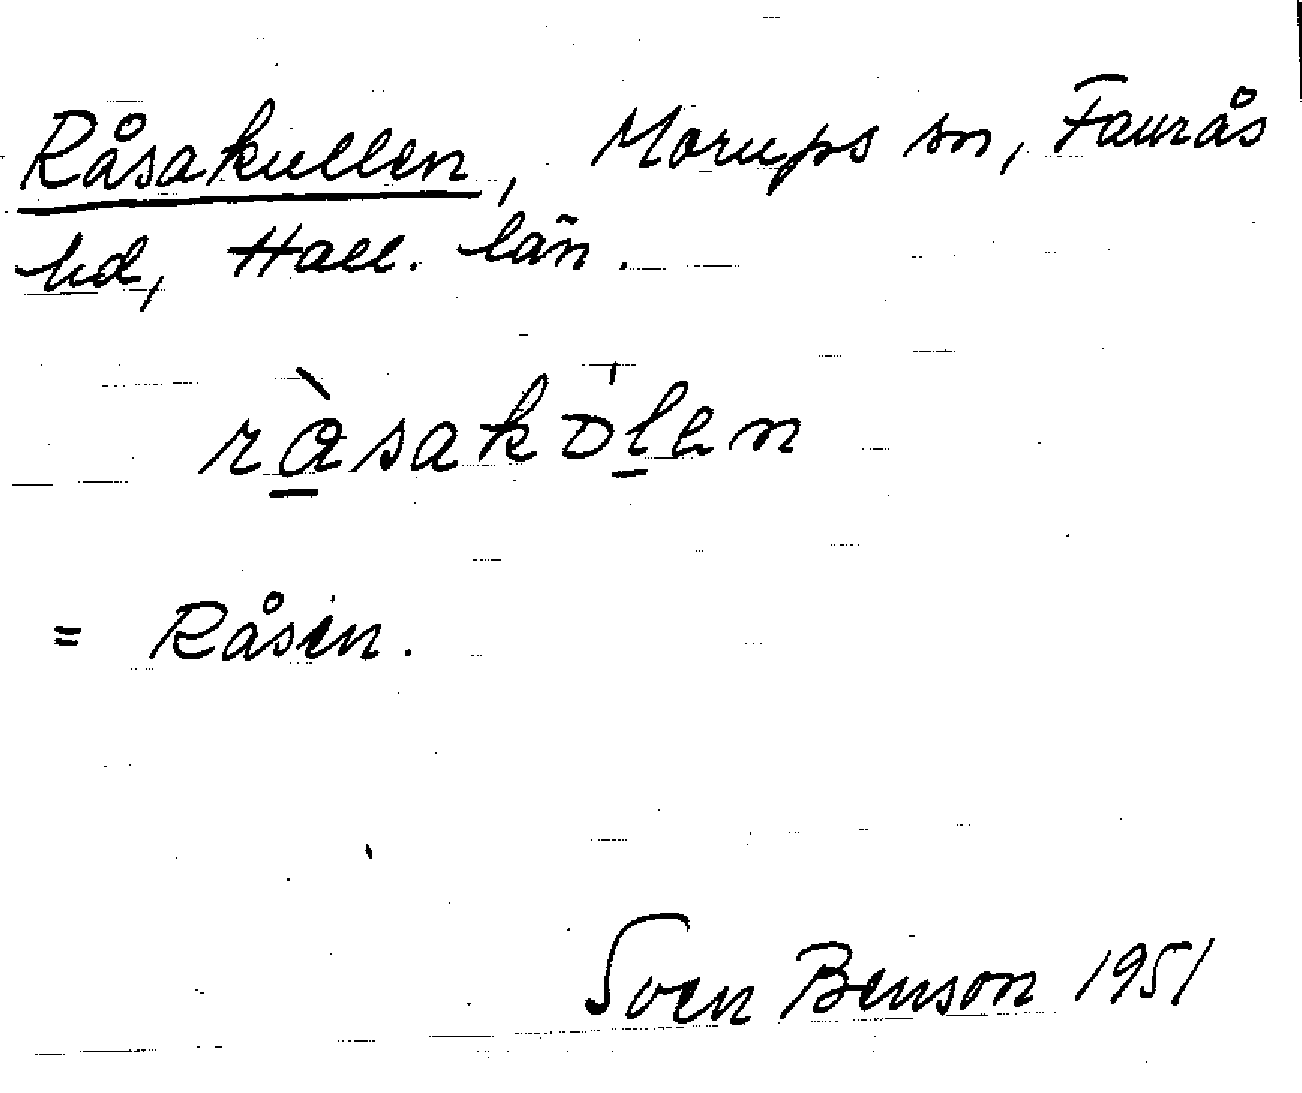 Råsakullen, Morups sn, Faurås
hd, Hall. län.
ràsakölen
= Råsen.
Sven Benson 1951